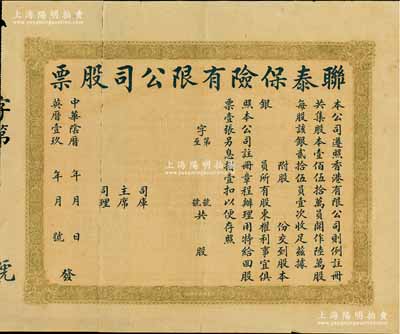 聯泰保險有限公司股票
本公司遵照香港有限公司則例註冊
共集股本壹佰伍拾萬員開作陸萬股
每股該銀貳拾伍員壹次收足茲據
附股 份交到股本
銀 員所有股東權利事宜俱
照本公司註冊章程辦理用特給回股
票壹張另息摺壹扣以便存照
字第 號
至 號共 股
司庫
主席
司理
中華陰曆 年 月 日
英曆壹玖 年 月 號 發
字第
號
上海陽明拍賣
www.yangmingauction.com
上海陽明拍賣
上海陽明拍賣